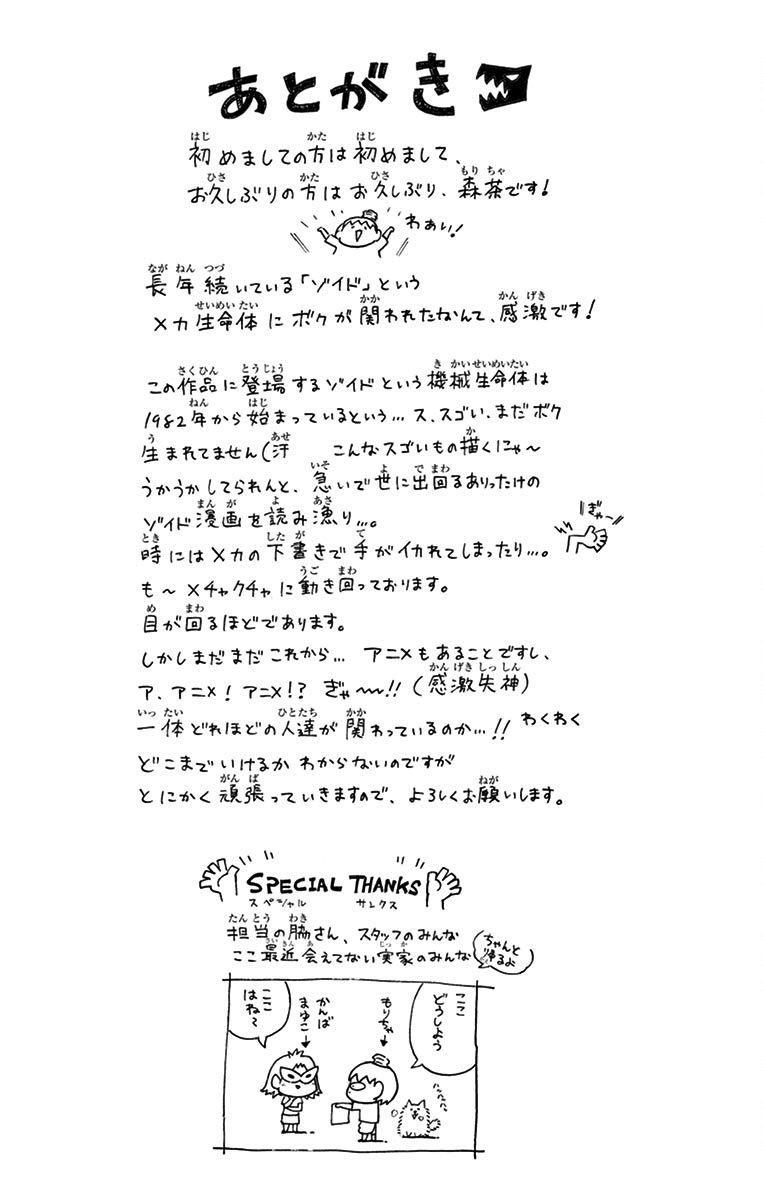 あとがき
初めましての方は初めまして、
お久しぶりの方はお久しぶり、森茶です!
わぁい!
長年続いている「ゾイド」という
メカ生命体にボクが関われたなんて、感激です!
この作品に登場するゾイドという機械生命体は
1982年から始まっているという…ス、スゴい、まだボク
生まれてません(汗 こんなスゴいもの描くにゃ〜
うかうかしてられんと、急いで世に出回るありったけの
ゾイド漫画を読み漁り…。
ぎゃー
時にはメカの下書きで手がイカれてしまったり…。
も〜メチャクチャに動き回っております。
目が回るほどであります。
しかしまだまだこれから… アニメもあることですし、
ア、アニメ!アニメ!?ぎゃ〜〜!!(感激失神)
一体どれほどの人達が関わっているのか…!!わくわく
どこまでいけるかわからないのですが
とにかく頑張っていきますので、よろしくお願いします。
SPECIAL THANKS
スペシャル サンクス
担当の脇さん、スタッフのみんな
ここ最近会えてない実家のみんな
ちゃんと
帰るよ
ここ
どうしよう
もりちゃ→
かんば
まゆこ→
ここ
はね〜